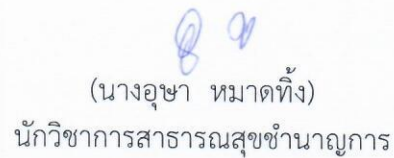 (นางอุษา หมาดทิ้ง)
นักวิชาการสาธารณสุขชำนาญการ